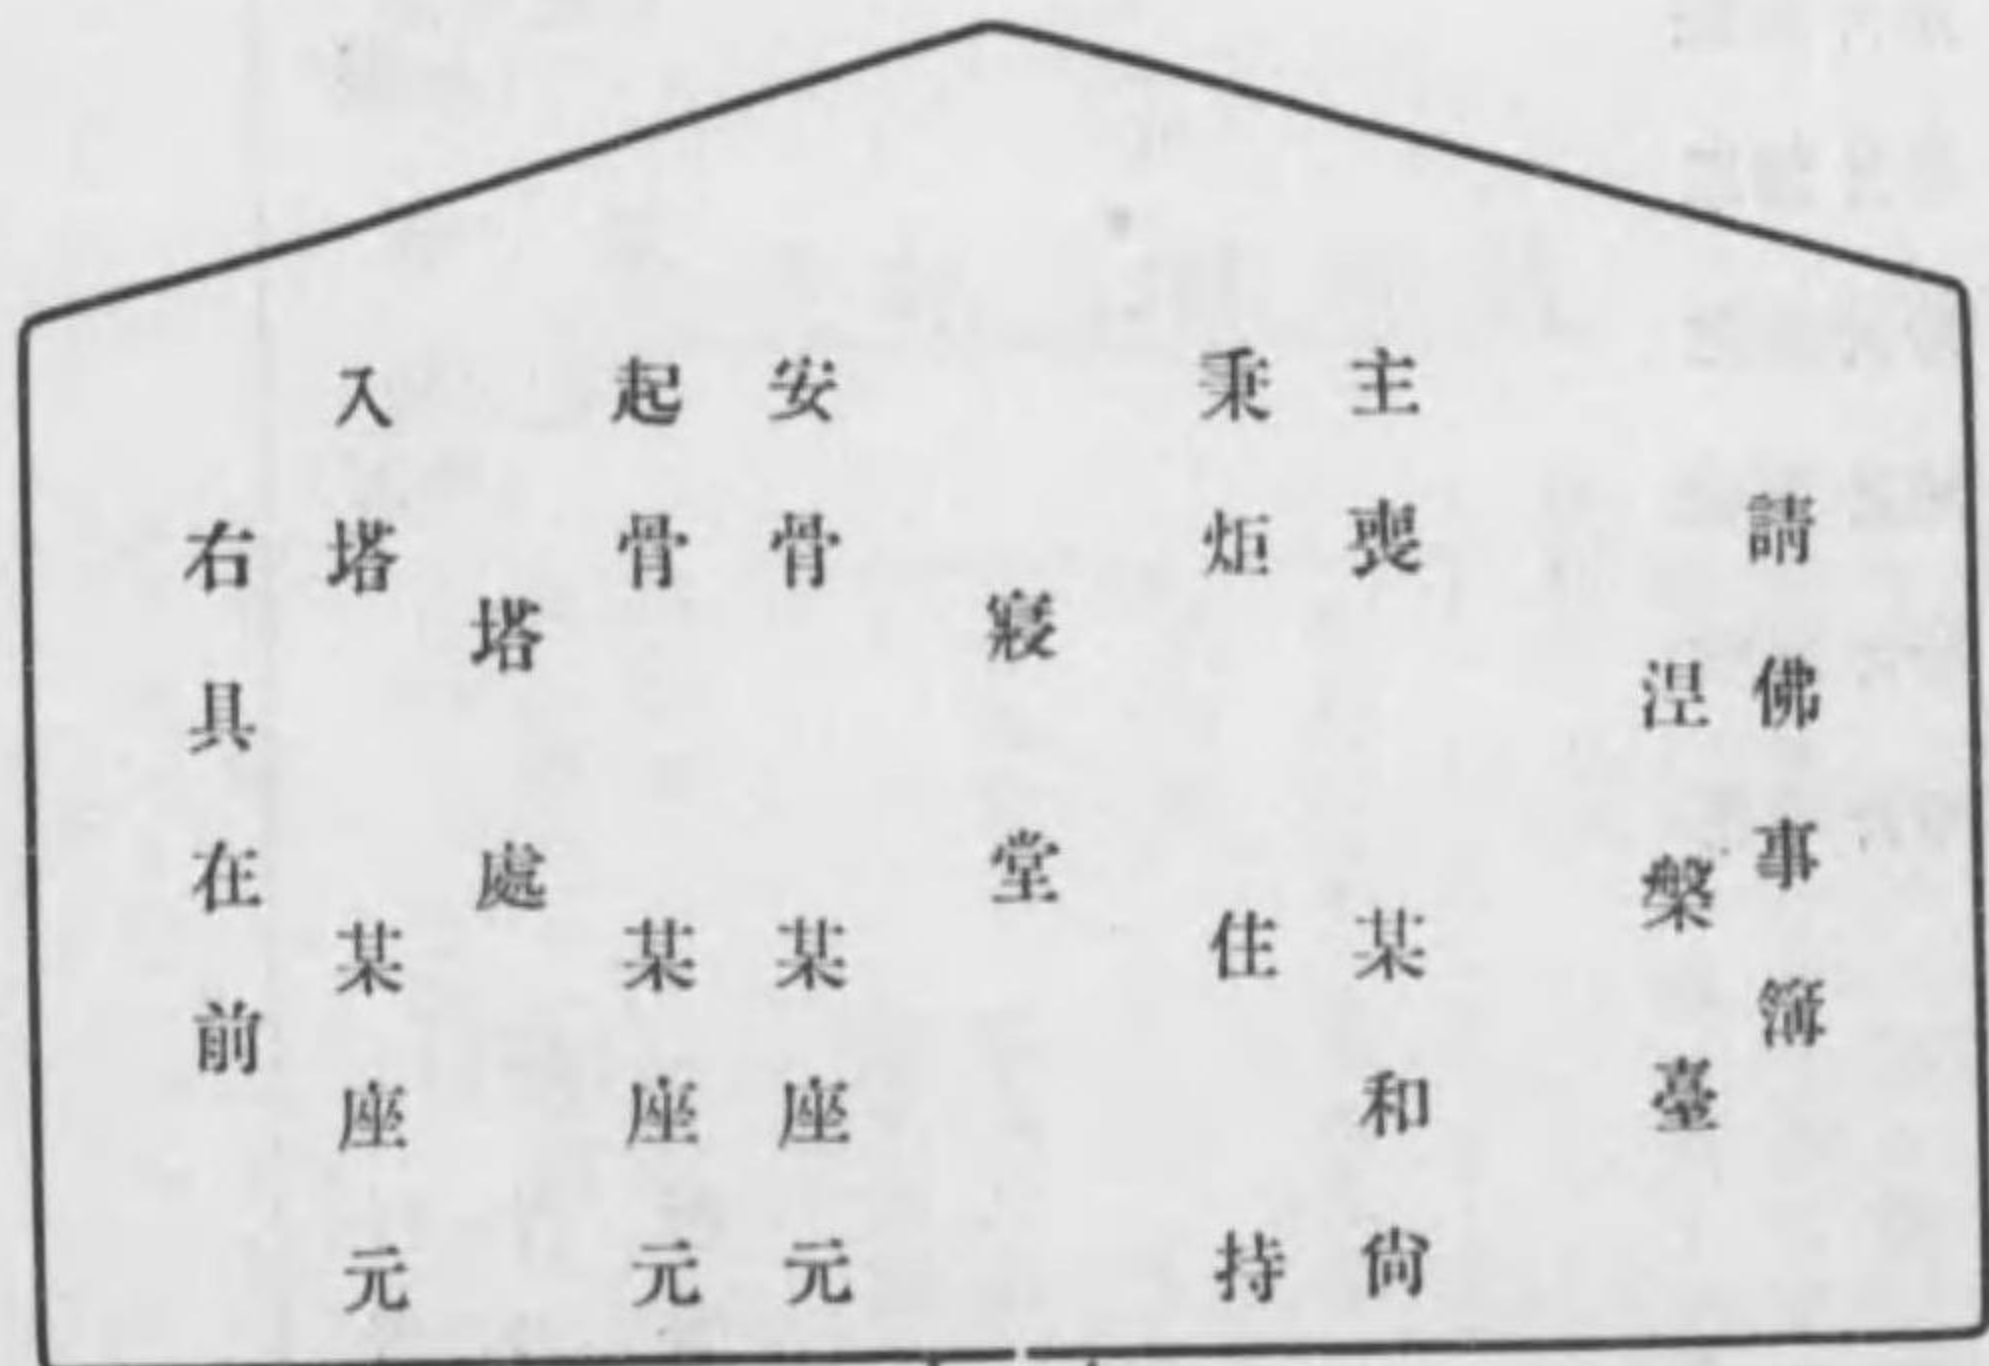 請佛事簿
涅槃臺
主喪　某和尙
秉炬　住持
寢堂
安骨　某座元
起骨　某座元
塔處
入塔　某座元
右具在前